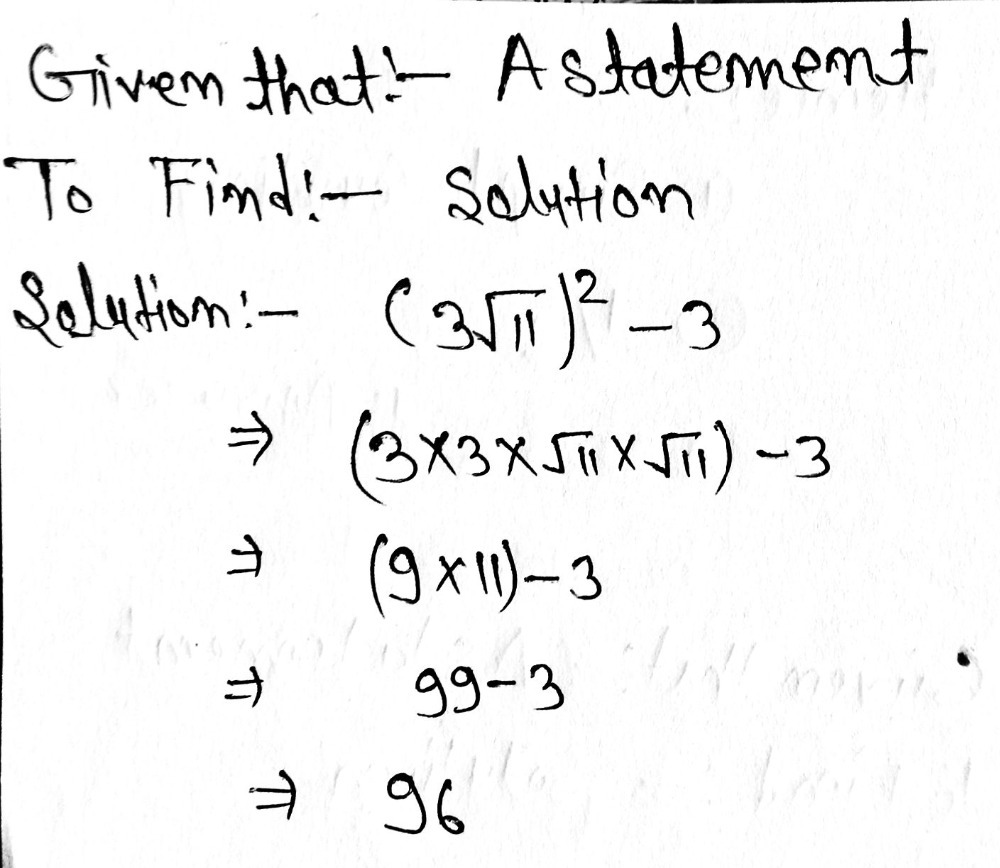 Given that:- A statement
To Find:- Solution
Solution:- (3√11)² - 3
⇒ (3×3×√11×√11) - 3
⇒ (9×11) - 3
⇒ 99-3
⇒ 96